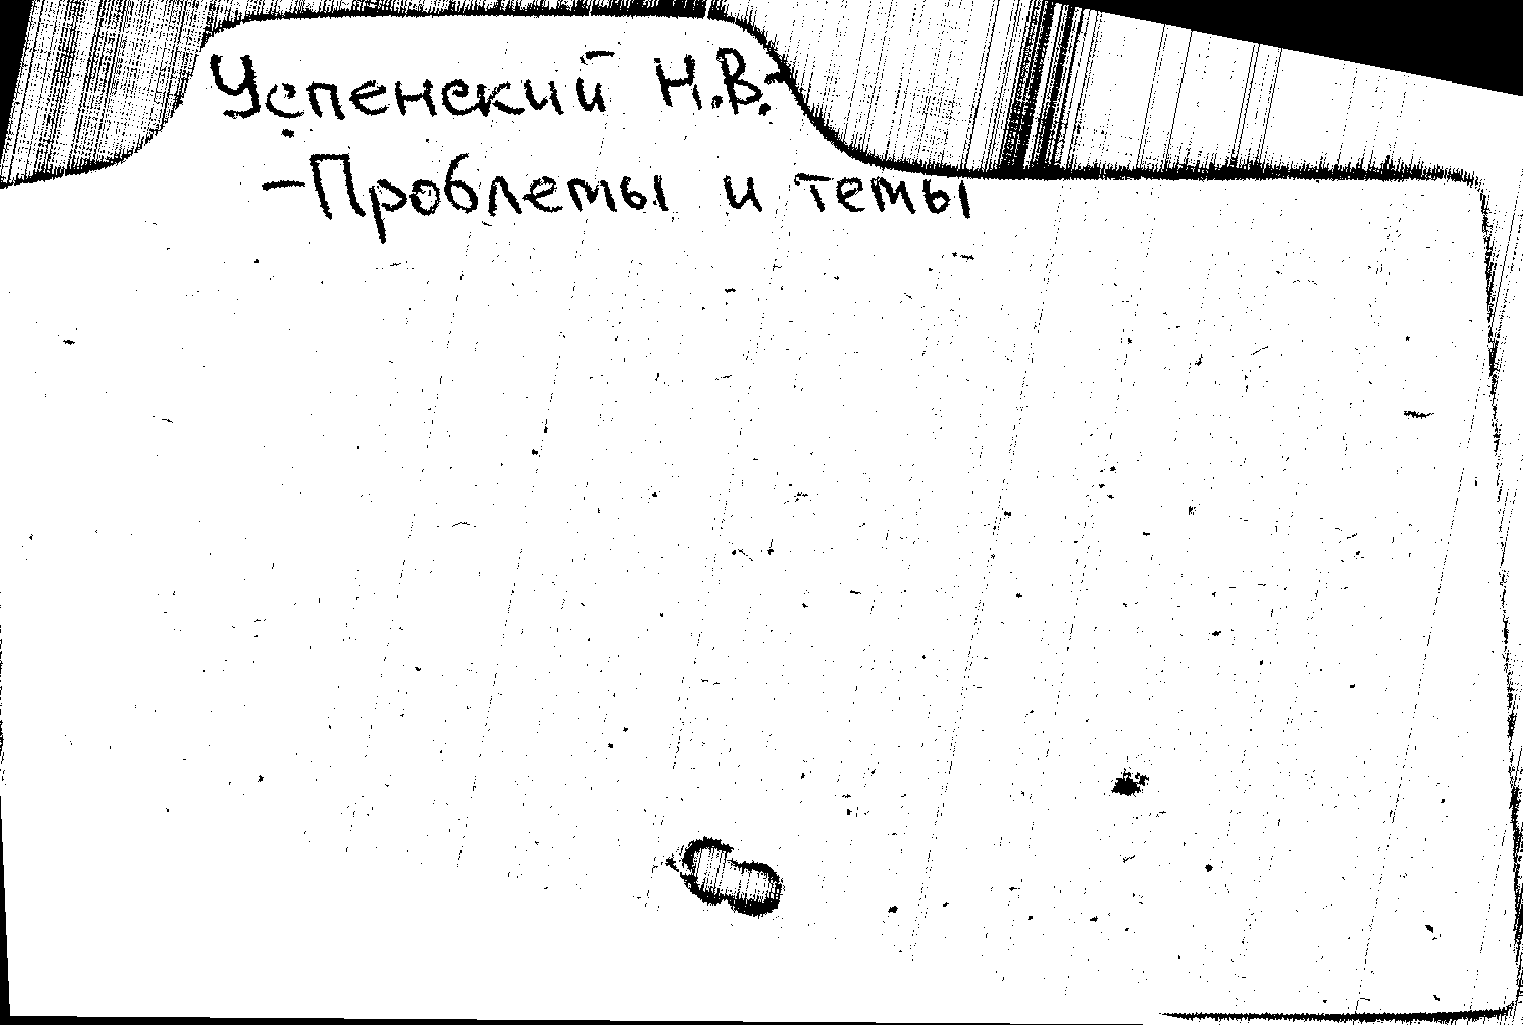 Успенский Н.В.-
-Проблемы и темы